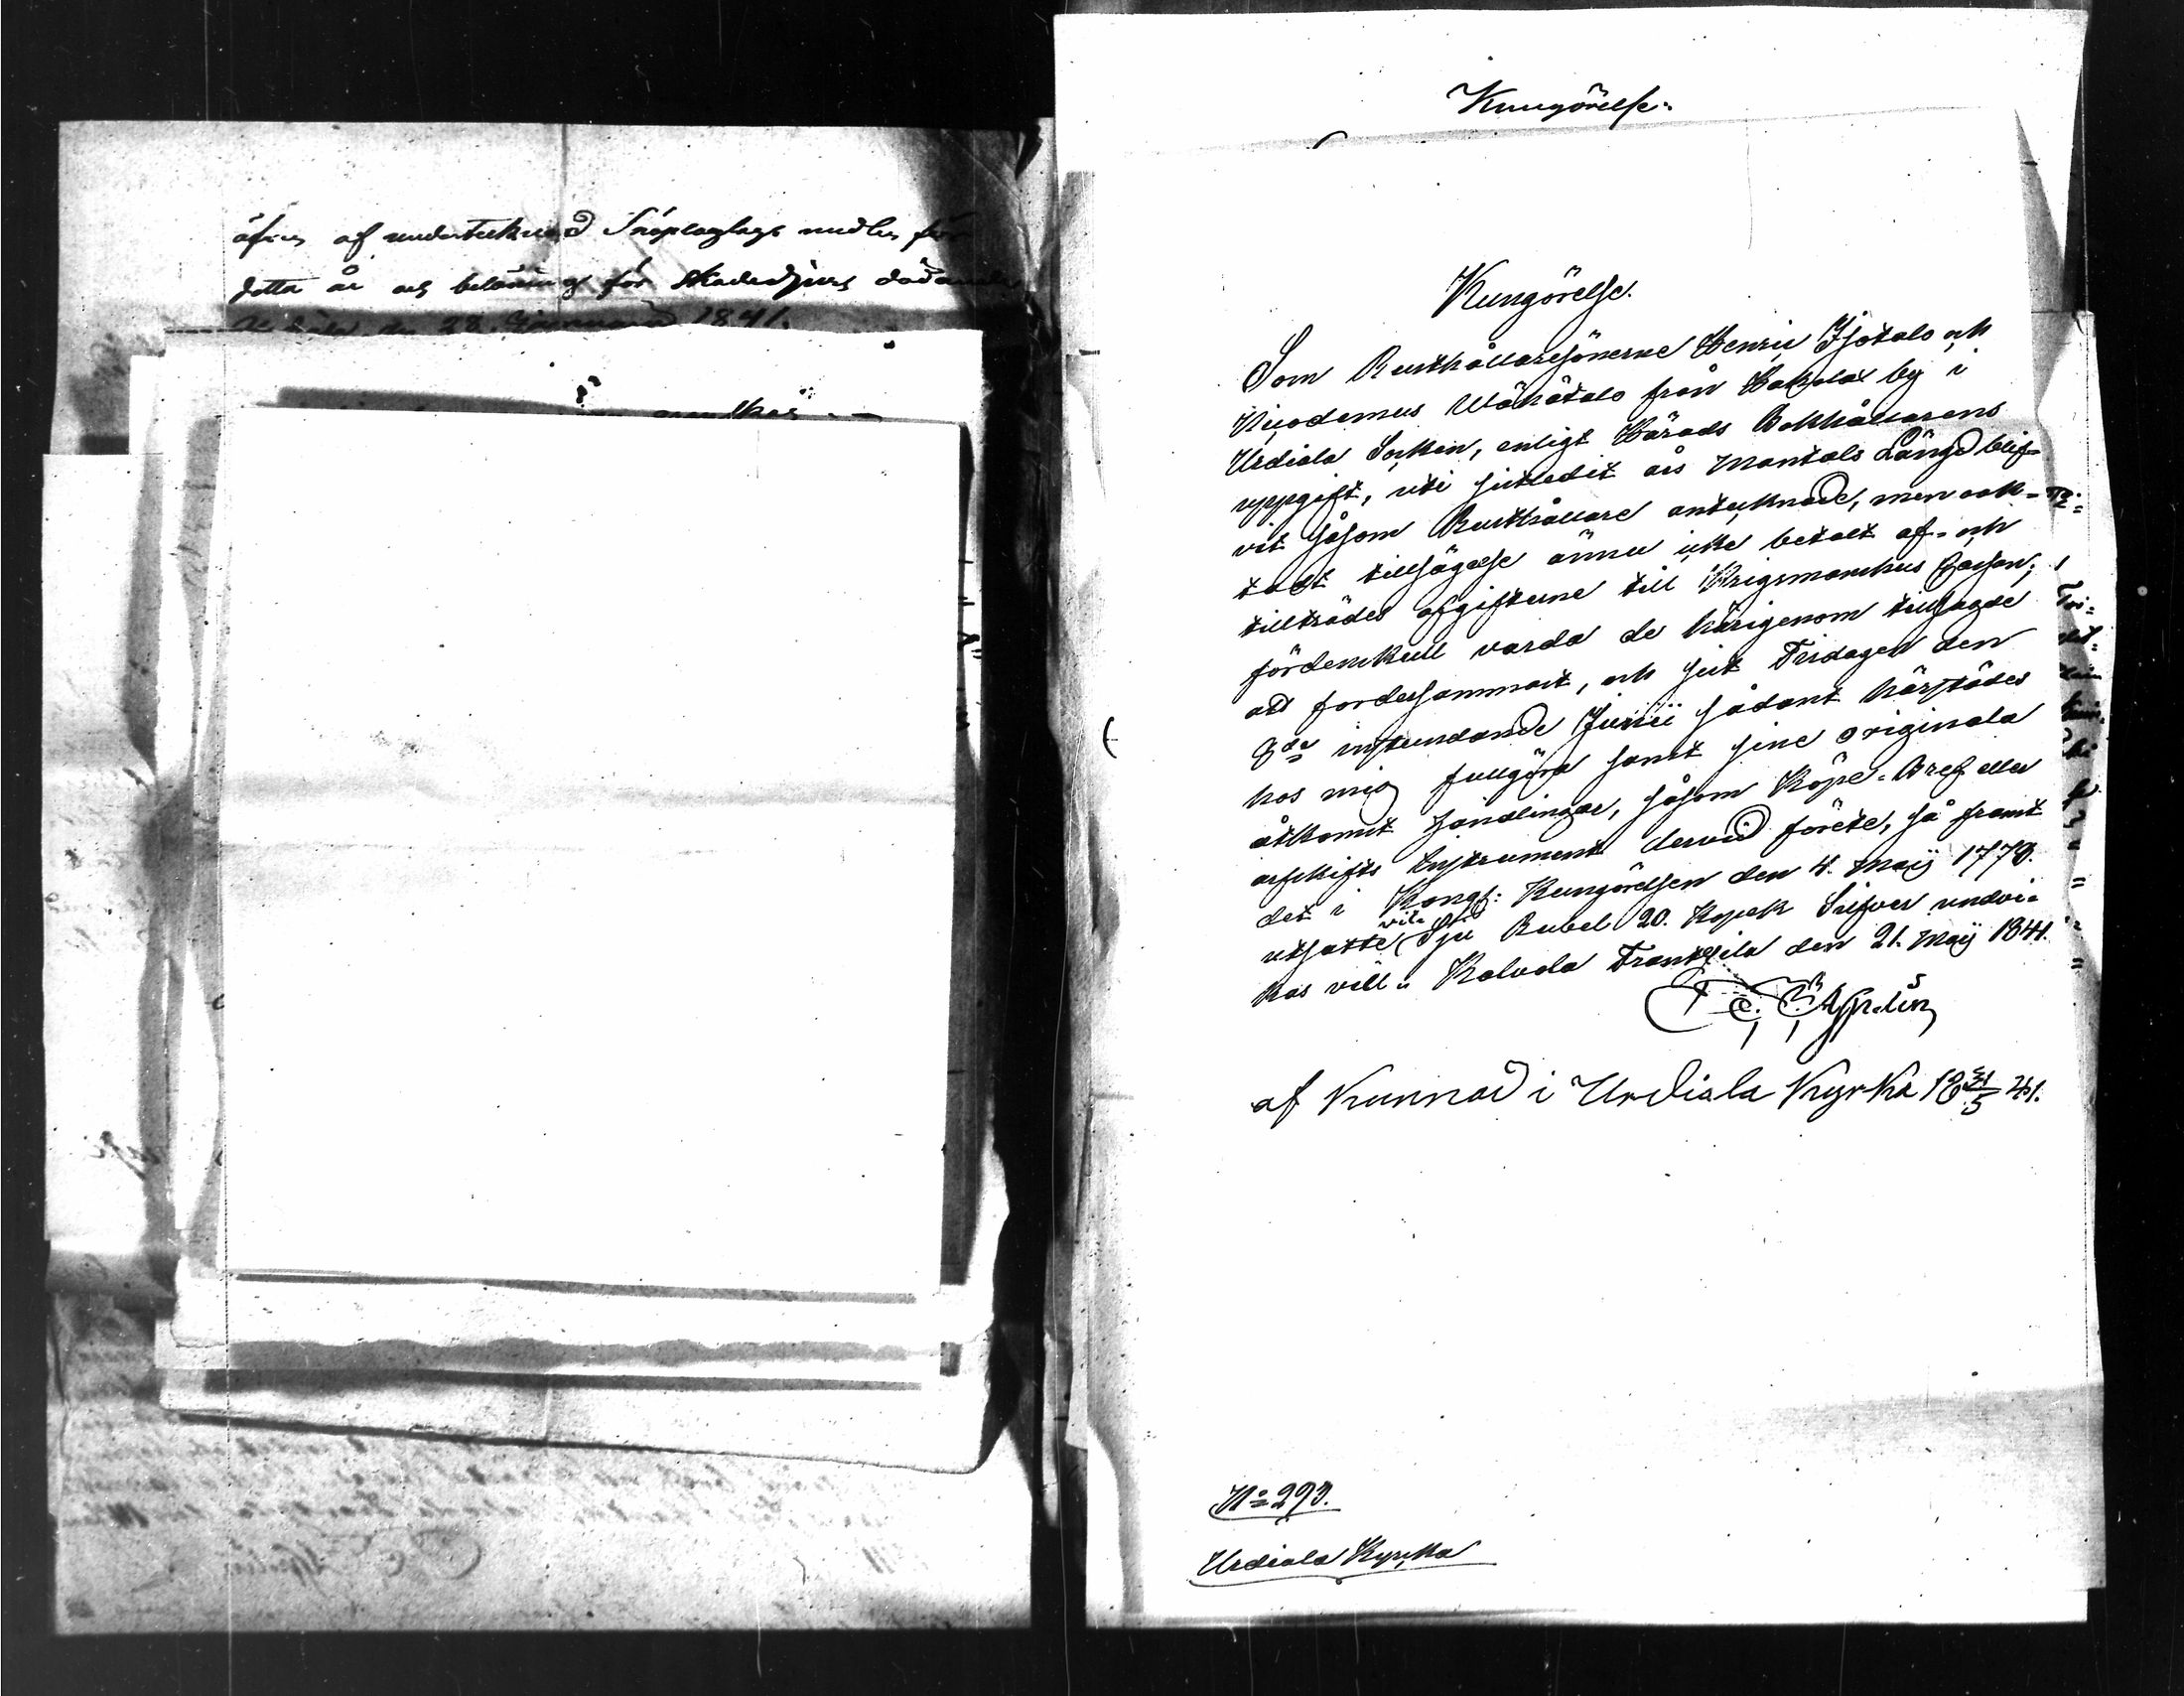 äfven af undertecknad Skoplaglags medlen för
detta år och belöning för Skadedjurs dödande
den 28 Januari 1841.
Kungörelse.
Kungörelse.
Som Rusthållaresönerne Henric Isotalo och
Nicodemus Wähätalo från Hakolax by i
Urdiala Socken, enligt Härads Bokhållarens
uppgift, uti sistledit års Mantals Längd blif-
vit såsom Rusthållare antecknade, men oak-
tadt tillsägelse ännu icke betalt af- och
tillträdes afgifterne till Krigsmanshus Cassan;
fördenskull varda de härigenom tillsagde
att fordersammast, och sist Fridagen den
8de instundande Junii sådant härstädes
hos mig fullgöra samt sine originala
åtkomst handlingar, såsom Köpe-Bref eller
arfskifts Instrument dervid förete, så framt
det i Kongl: Kungörelsen den 4. Maij 1778.
utsatte vite Sju Rubel 20. Kopek Silfver undvi-
kas vill. Kalvola Frantsila den 21. Maij 1841.
af Kunnad i Urdiala Kyrka 18 31/5 41.
No 293.
Urdiala Kyrka